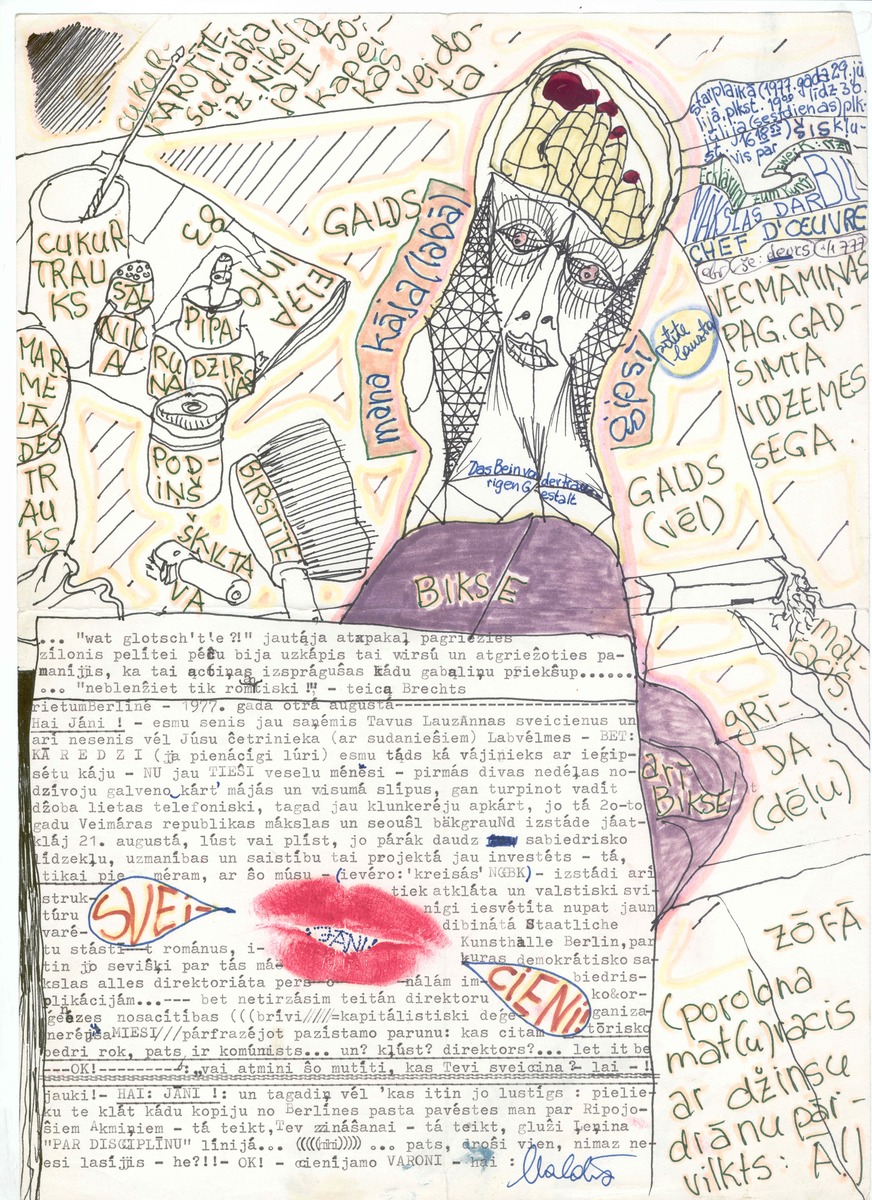 CUKUR-
KAROTĪTE
sudraba
iz Nikola
ja II 50-
kapei-
kas
veido-
ta.
starplaikā (1977. gada 29. jū
lijā, plkst.
jūlija (sestdienas) plk-
st.
vis par ŠIS kļu-
Erklärung
zum Kunst
MĀKSLAS DARBU
CHEF D'ŒUVRE
VECMĀMIŅAS
PAG. GAD-
SIMTA
VIDZEMES
SEGA.
CUKUR
TRAU
KS
SĀL
NĪC
A
83
PIPA-
RU DZIRNA
VAS
GALDS
mana kāja (labā)
ģipsī
MAR
ME
LĀ
DES
TR
AU
KS
POD-
IŅŠ
BIRSTĪTE
ŠĶILTA
VA
Das Bein von der trau-
rigen Gestalt
GALDS
(vēl)
BIKSE
mat-
racis
grī-
DA
(dēļu)
arī
BIKSE
... "wat glotsch't!e ?!" jautāja atpakaļ pagriezies
zilonis pelītei pēc bija uzkāpis tai virsū un atgriežoties pa-
manījis, ka tai actiņas izsprāgušas kādu gabaliņu priekšup.......
... "neblenžiet tik romantiski !" - teica Brechts
rietumBerlīnē - 1977. gada otrā augustā-
Hai Jāni ! - esmu senis jau saņēmis Tavus LauzAnnas sveicienus un
arī nesenis vēl Jūsu četrinieka (ar sudaniešiem) Labvēlmes - BET:
KĀ R E D Z I (ja pienācīgi lūri) esmu tāds kā vājinieks ar ieģip-
sētu kāju - NU jau TIEŠI veselu mēnesi - pirmās divas nedēļas no-
dzīvoju galvenokārt' mājās un visumā slīpus, gan turpinot vadīt
džoba lietas telefoniski, tagad jau klunkerēju apkārt, jo tā 2o-to
gadu Veimāras republikas mākslas un seouāl bäkgrauNd izstāde jāat-
klāj 21. augustā, lūst vai plīst, jo pārāk daudz sabiedrisko
līdzekļu, uzmanības un saistību tai projektā jau investēts - tā,
tikai pie mēram, ar šo mūsu - (ievēro:'kreisās' NGBK)- izstādi arī
struk- tiek atklāta un valstiski svi-
tūru nīgi iesvētīta nupat jaun
varē- dibinātā Staatliche
tu stāstīt románus, i- Kunsthalle Berlin,par
tin jo sevišķi par tās mā- kuras demokrātisko sa-
kslas alles direktoriāta perso-nālām im- biedris-
plikācijām...--- bet netirzāsim teitān direktoru ko&or-
ģēnezes nosacītības (((brīvi////=kapitālistiski deģe ganiza-
nerēja MIESI///pārfrazējot pazīstamo parunu: kas citam tōrisko
bedri rok, pats ir komūnists... un? kļūst? direktors?... let it be
---OK!---------:„vai atmini šo mutīti, kas Tevi sveicina?- lai - !
SVEI-
JĀNI!
CIENI!
jauki!- HAI: JĀNI !: un tagadiņ vēl 'kas itin jo lustīgs : pielie-
ku te klāt kādu kopiju no Berlīnes pasta pavēstes man par Ripojo-
šiem Akmiņiem - tā teikt,Tev zināšanai - tā teikt, gluži Ļeņina
"PAR DISCIPLĪNU" līnijā... (((((hi))))) ... pats, droši vien, nimaz ne-
esi lasījis - he?!!- OK! - cienījamo VARONI - hai :
Valdis
ZŌFĀ
(porolona
mat(u)racis
ar džinsu
drānu pār-
vilkts: A!)